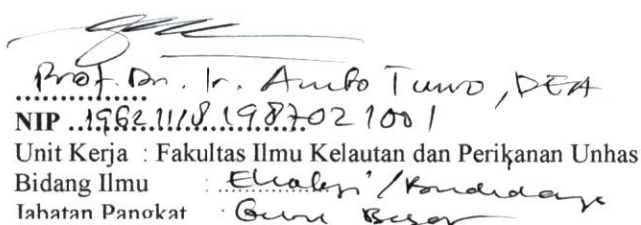 Prof. Dr. Ir. Ambo Tuwo, DEA
NIP 19621118 198702 1001
Unit Kerja : Fakultas Ilmu Kelautan dan Perikanan Unhas
Bidang Ilmu : Ekologi / Budidaya
Jabatan Pangkat : Guru Besar